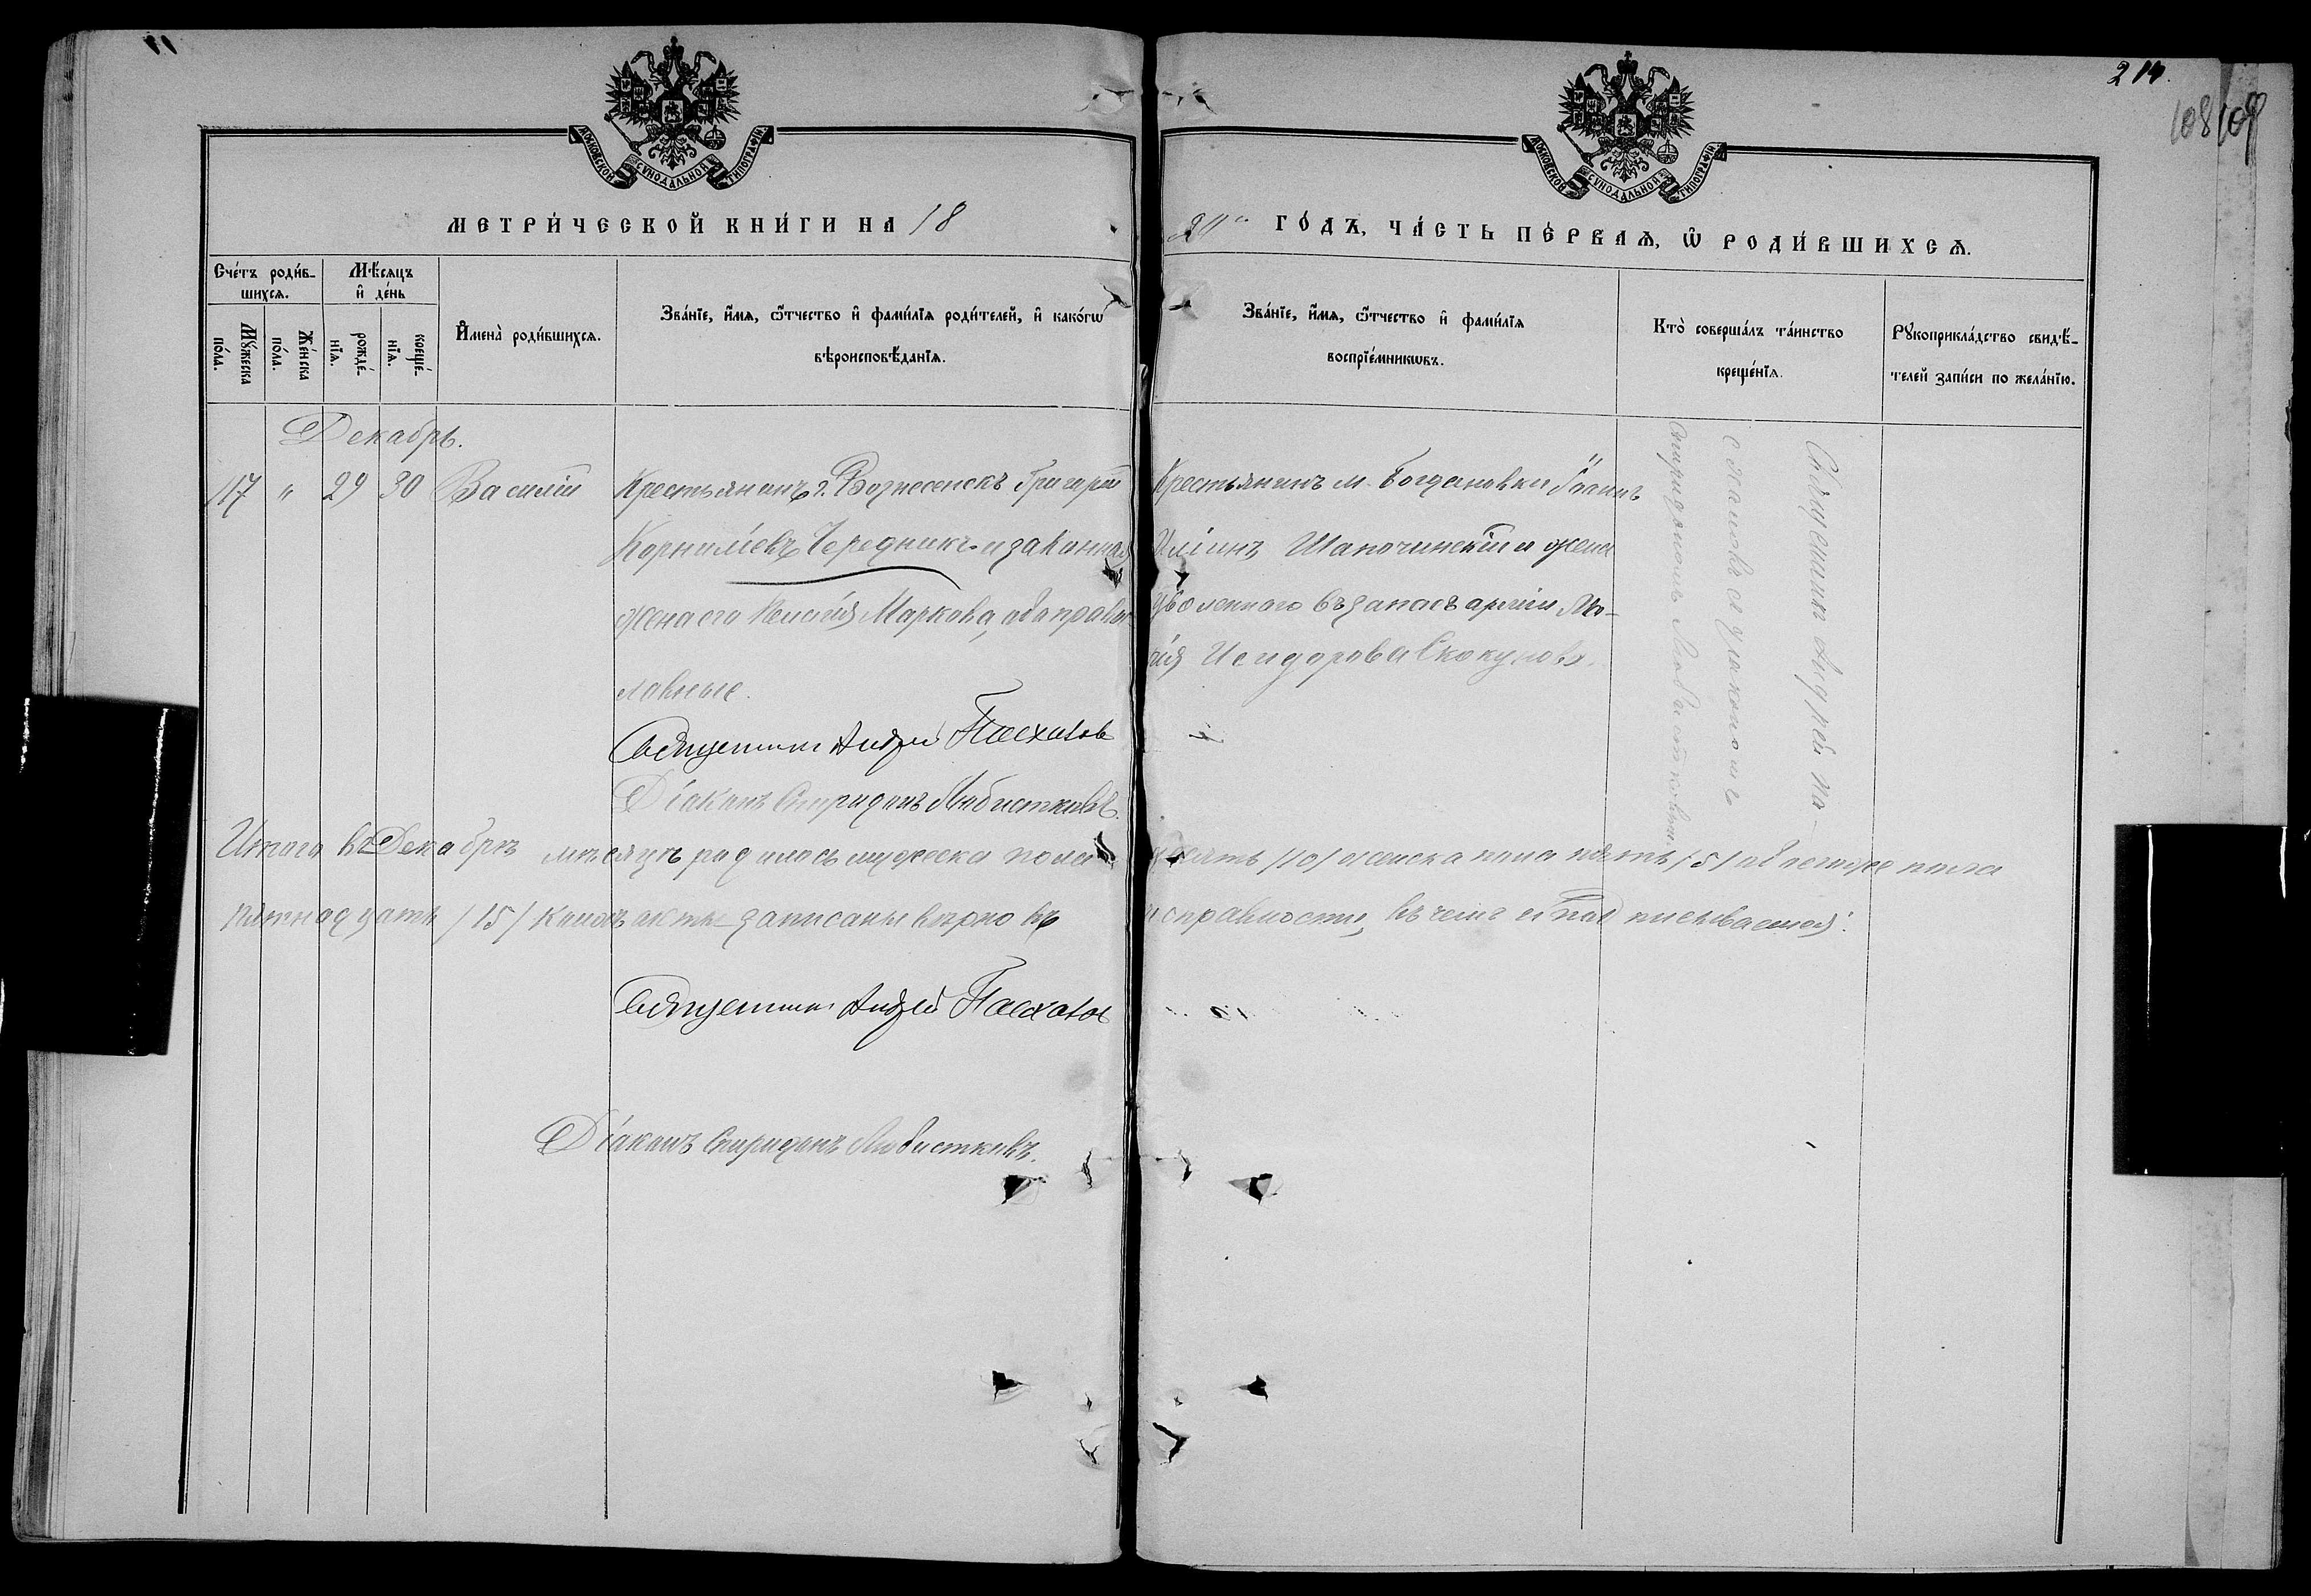 214.
108 109
МОСКОВСКОЙ СѴНОДАЛЬНОЙ ТИПОГРАФІИ
МОСКОВСКОЙ СѴНОДАЛЬНОЙ ТИПОГРАФІИ
МЕТРИ́ЧЕСКОЙ КНИ́ГИ НА 18
ГО́ДЪ, ЧА́СТЬ ПЕ́РВАЯ, Ѿ РОДИ́ВШИХСЯ.
Сче́тъ роди́в-
шихся.
Му́жеска по́ла.
Же́нска по́ла.
Мѣ́сяцъ
и де́нь
рожде́-
нія.
креще́-
нія.
Имена̀ роди́вшихся.
Зва́ніе, и́мя, ѻ́тчество и фами́лія роди́телей, и како́гѡ
вѣроисповѣ́данія.
Зва́ніе, и́мя, ѻ́тчество и фами́лія
воспріе́мникѡвъ.
Кто̀ соверша́лъ та́инство
креще́нія.
Рукоприкла́дство свидѣ́-
телей за́писи по жела́нію.
Декабрь.
117 " 29 30 Василій
Крестьянинъ г. Вознесенскъ Григорій
Корниліевъ Чередникъ и законная
жена его Пелагія Маркова, оба правос
лавные.
Священникъ Андрей Пасхаловъ
Діаконъ Спиридонъ Любистковъ.
Крестьянинъ м. Богдановки Іоаннъ
жена
уволеннаго въ запасъ арміи Ма-
рія Исидорова
Священникъ Андрей Па-
схаловъ съ діакономъ
Спиридономъ Любистковымъ
Итого въ Декабрѣ мѣсяцѣ родилось мужеска пола десять /10/ женска пола пять /5/ обоего пола
пятнадцать /15/ актъ записаны вѣрно въ исправности, въ чемъ и подписываемся:
Священникъ Андрей Пасхаловъ
Діаконъ Спиридонъ Любистковъ.